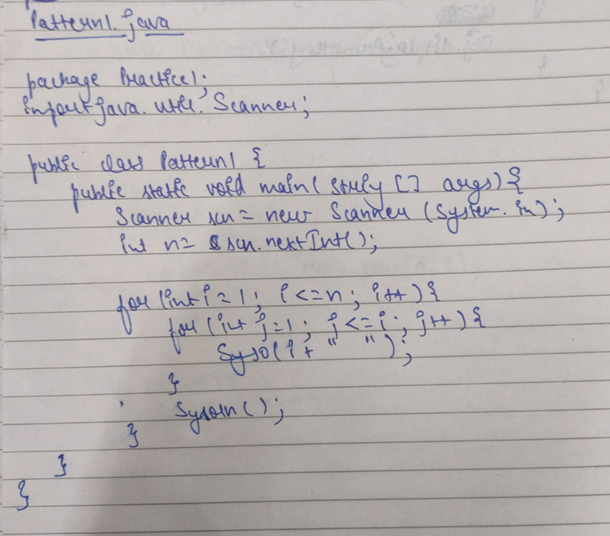 Pattern1.java
package Practice1;
import java.util.Scanner;
public class Pattern1 {
public static void main(String [] args){
Scanner scn = new Scanner (System.in);
int n= scn.nextInt();
for(int i=1; i<=n; i++){
for(int j=1; j<=i; j++){
Syso(i+ " ");
}
Sysoln();
}
}
}